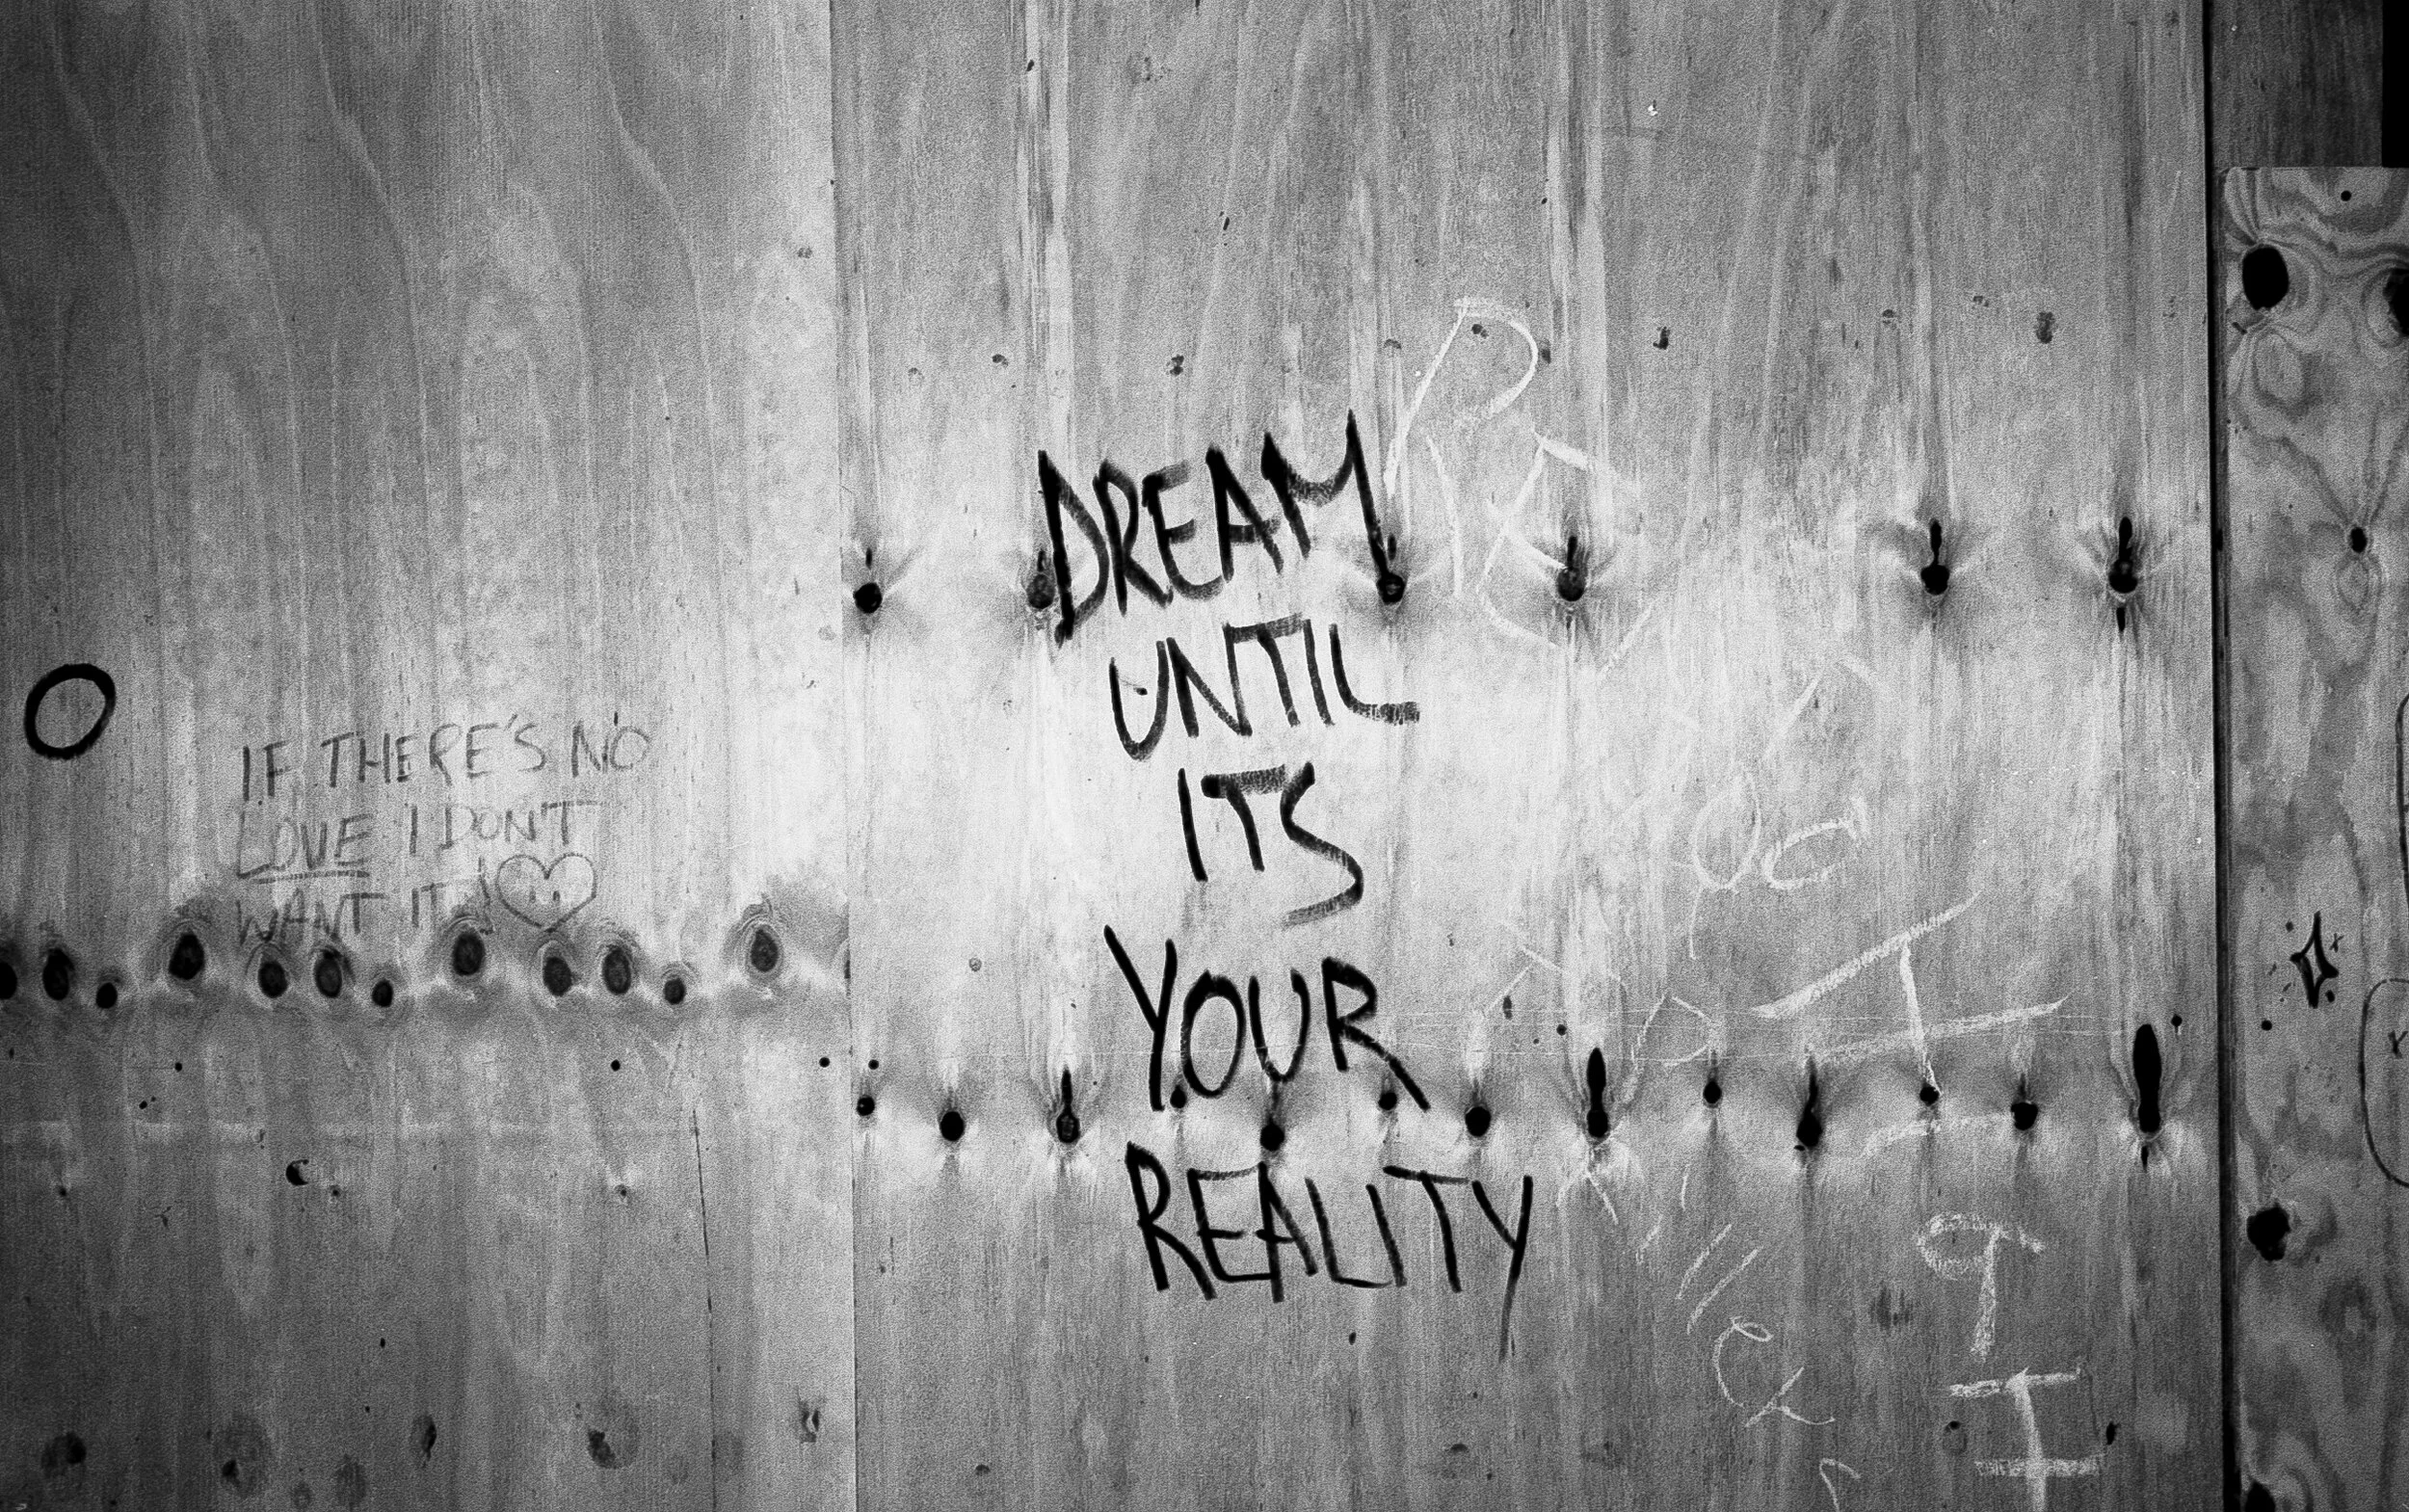 IF THERE'S NO
LOVE I DON'T
WANT IT!
DREAM
UNTIL
ITS
YOUR
REALITY